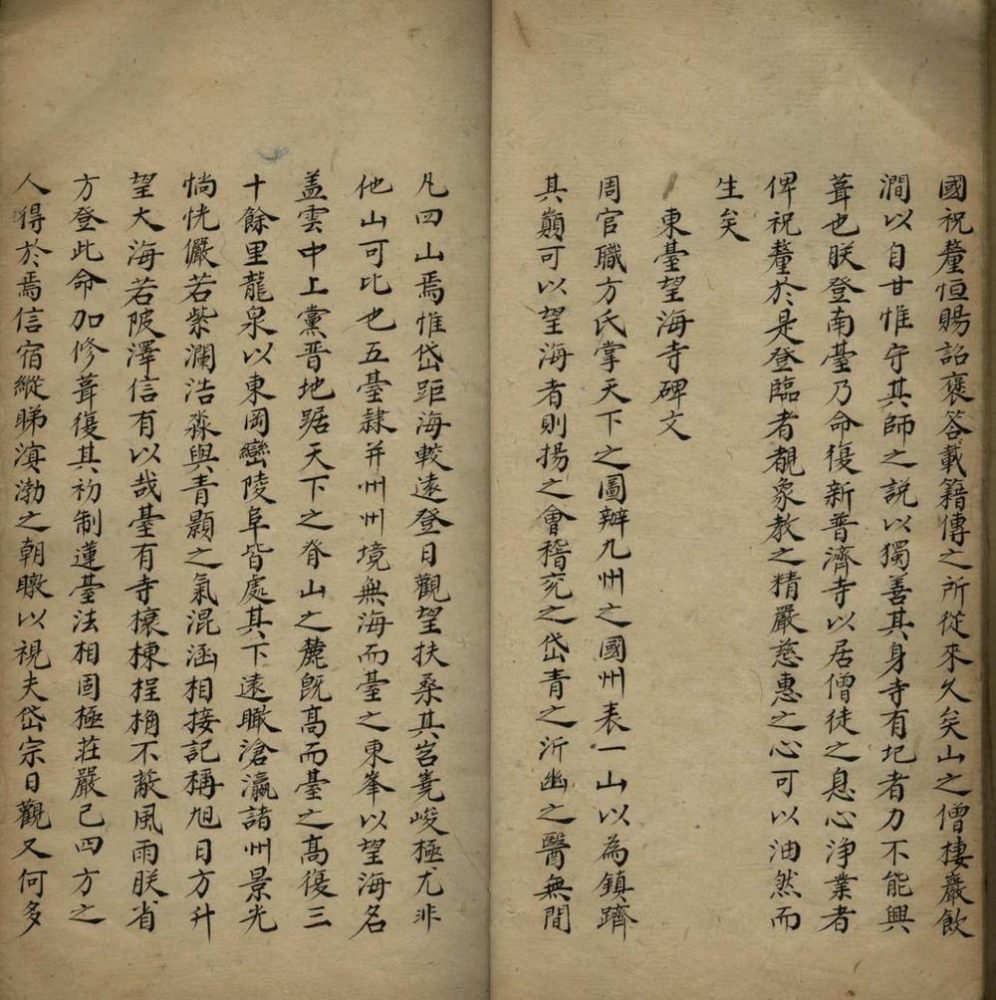 國祝釐恒賜詔褒答載籍傳之所從來久矣山之僧棲巖飲
澗以自甘惟守其師之說以獨善其身寺有圮者力不能興
葺也朕登南臺乃命復新普濟寺以居僧徒之息心淨業者
俾祝釐於是登臨者覩象教之精嚴慈惠之心可以油然而
生矣
東臺望海寺碑文
周官職方氏掌天下之圖辨九州之國州表一山以為鎮躋
其巔可以望海者則揚之會稽兖之岱青之沂幽之醫無閭
凡四山焉惟岱距海較遠登日觀望扶桑其岧嶤峻極尤非
他山可比也五臺隸并州州境無海而臺之東峯以望海名
盖雲中上黨晋地踞天下之脊山之麓旣高而臺之高復三
十餘里龍泉以東岡巒陵阜皆處其下遠瞰滄瀛諸州景光
惝恍儼若紫瀾浩淼與青顥之氣混涵相接記稱旭日方升
望大海若陂澤信有以哉臺有寺榱棟桯桷不蔽風雨朕省
方登此命加修葺復其初制蓮臺法相固極莊嚴已四方之
人得於焉信宿縱睇溟渤之朝暾以視夫岱宗日觀又何多